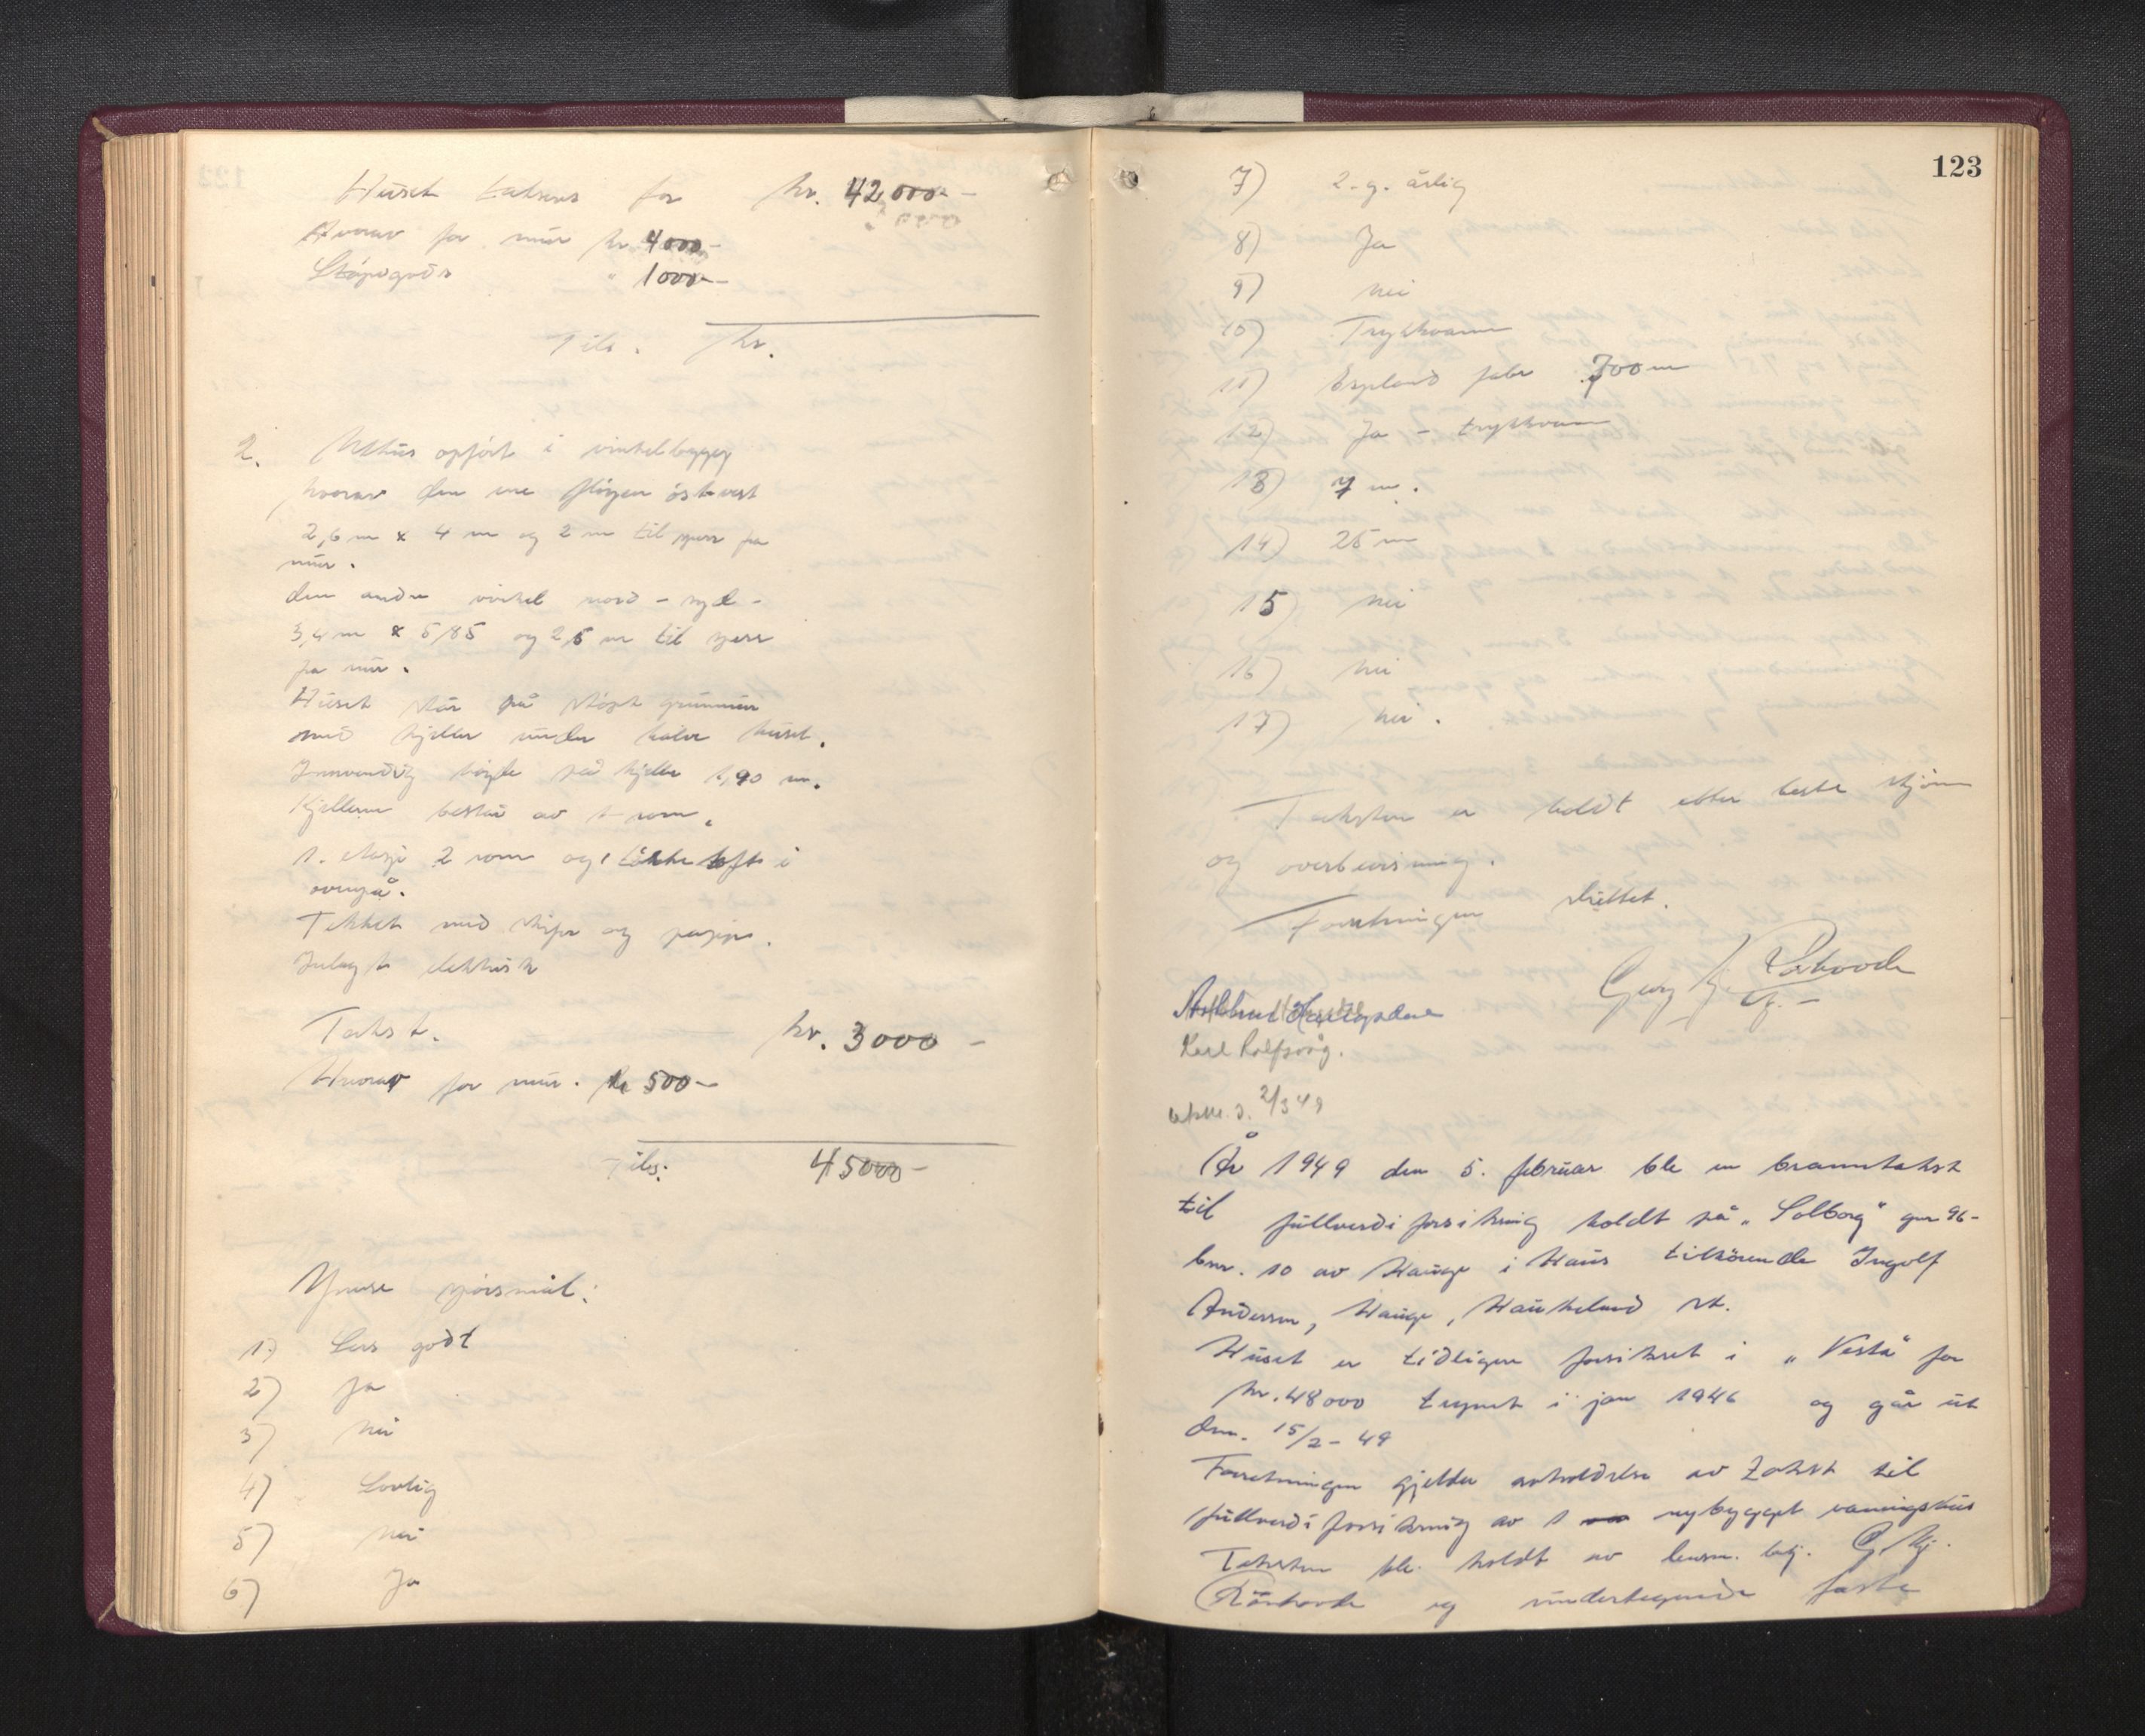 Huset takseres for kr. 42000.-
Hvorav for mur kr 4000.-
Støpegods " 1000.-
Tils. kr.
2. Uthus opført i vinkelbygg
hvorav den ene fløyen öst-vest
2,6 m x 4 m og 2 m til røst fra
mur.
den andre vinkel nord - syd -
3,4 m x 5,85 og 2,5 m til
fra mur.
Huset står på støpt grunnmur
med kjeller under halve huset.
Innvendig höyde på kjeller 1,90 m.
Kjelleren består av 1 rom.
1. etasje 2 rom og loft i
Tekket med skifer og papp.
Innlagt elektrisk
Takst. kr. 3000 -
Hvorav for mur. kr 500-
Tils: 45000-
Ymse spörsmål:
1) Sers godt
2) Ja
3) Nei
4) Lovlig
5) Nei
6) Ja
123
7) 2. g. årlig
8) Ja
9) Nei
10) Trykkvann
11) Espeland fabr 700 m
12) Ja - trykkvann
13) 7 m.
14) 25 m
15) Nei
16) Nei
17) Nei.
Taksten er holdt etter beste skjönn
og overbevisning.
Forretningen sluttet.
Georg Kj. Rörhovde
Karl Rolfsvåg.
2/3 49
År 1949 den 5. februar ble en branntakst
til fullverdiforsikring holdt på "Solborg" gnr 96-
bnr. 10 av Hauge i Haus tilhörende Ingolf
Andersen, Hauge, Haukeland st.
Huset er tidligere forsikret i "Vesta" for
kr. 48000 tegnet i jan 1946 og går ut
den. 15/2 - 49
Forretningen gjelder avholdelse av takst til
fullverdiforsikring av 1 nybygget våningshus
Taksten ble holdt av lensm. btj. G. Kj.
Rörhovde og undertegnede faste